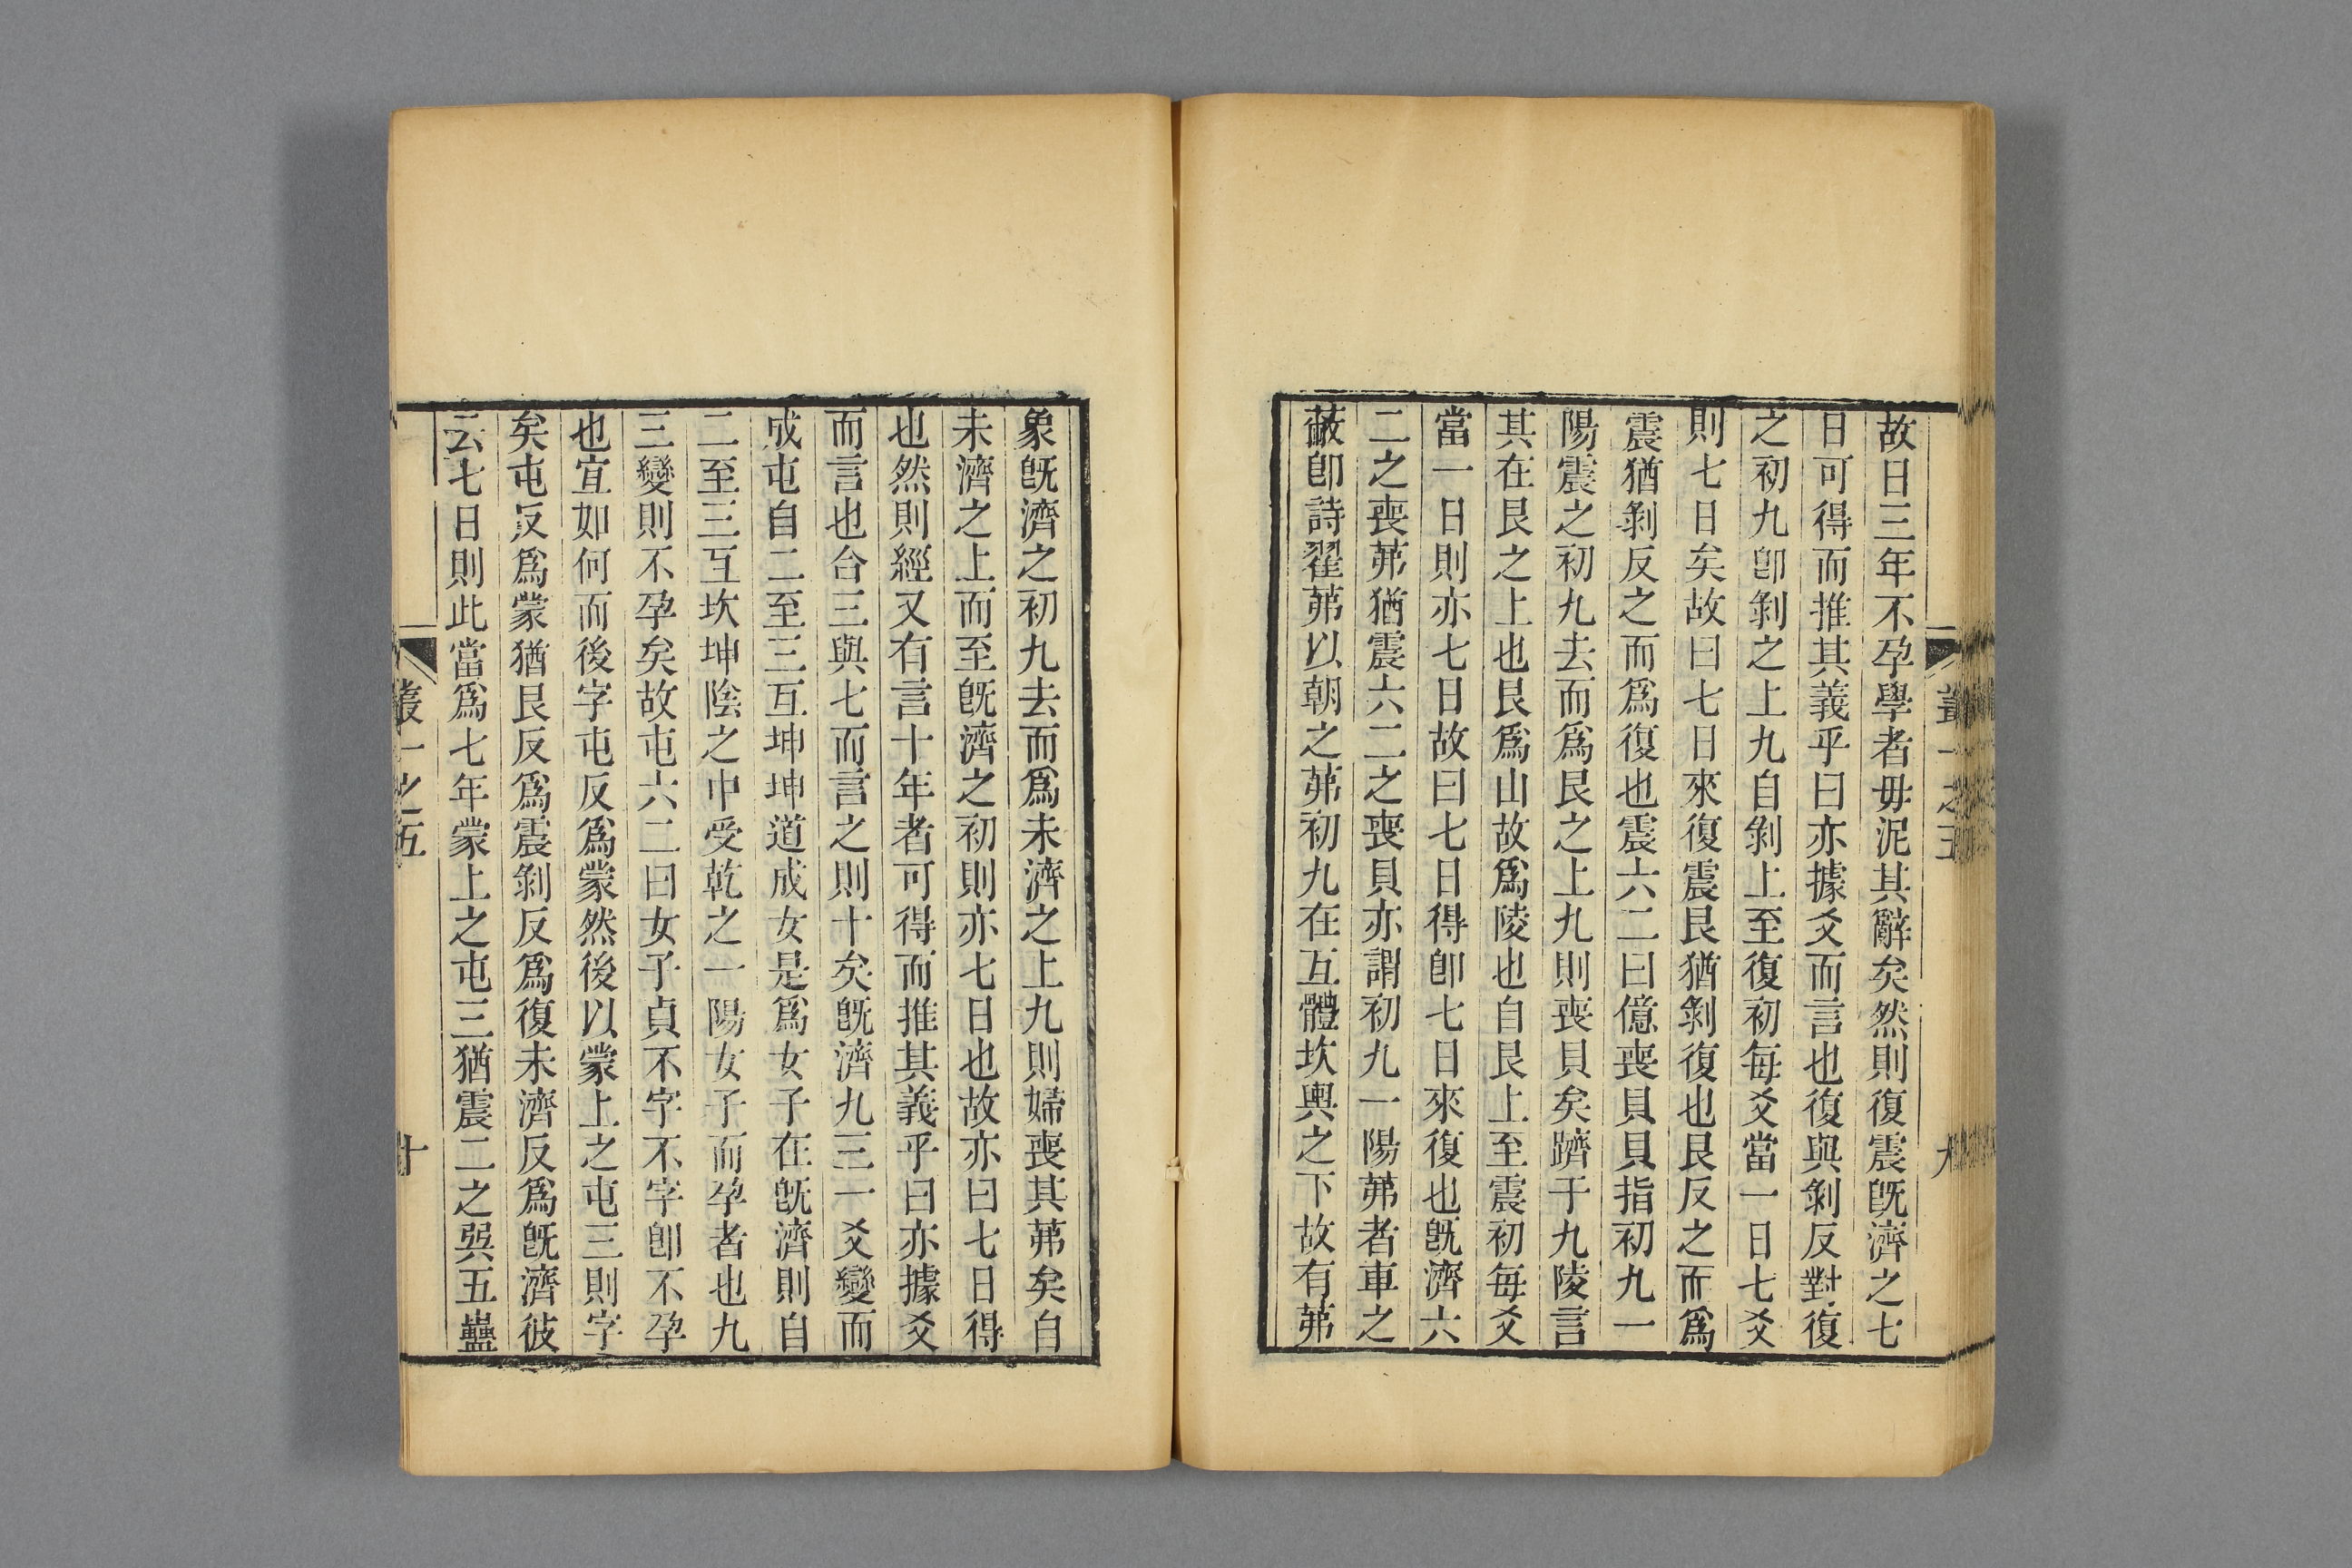 故曰三年不孕學者毋泥其辭矣然則復震旣濟之七
日可得而推其義乎曰亦據爻而言也復與剝反對復
之初九卽剝之上九自剝上至復初每爻當一日七爻
則七日矣故曰七日來復震艮猶剝復也艮反之而爲
震猶剝反之而爲復也震六二曰億喪貝貝指初九一
陽震之初九去而爲艮之上九則喪貝矣躋于九陵言
其在艮之上也艮爲山故爲陵也自艮上至震初每爻
當一日則亦七日故曰七日得卽七日來復也旣濟六
二之喪茀猶震六二之喪貝亦謂初九一陽茀者車之
蔽卽詩翟茀以朝之茀初九在互體坎輿之下故有茀
象旣濟之初九去而爲未濟之上九則婦喪其茀矣自
未濟之上而至旣濟之初則亦七日也故亦曰七日得
也然則經又有言十年者可得而推其義乎曰亦據爻
而言也合三與七而言之則十矣旣濟九三一爻變而
成屯自二至三互坤坤道成女是爲女子在旣濟則自
二至三互坎坤陰之中受乾之一陽女子而孕者也九
三變則不孕矣故屯六二曰女子貞不字不字卽不孕
也宜如何而後字屯反爲蒙然後以蒙上之屯三則字
矣屯反爲蒙猶艮反爲震剝反爲復未濟反爲旣濟彼
云七日則此當爲七年蒙上之屯三猶震二之巽五蠱
叢一之五
十